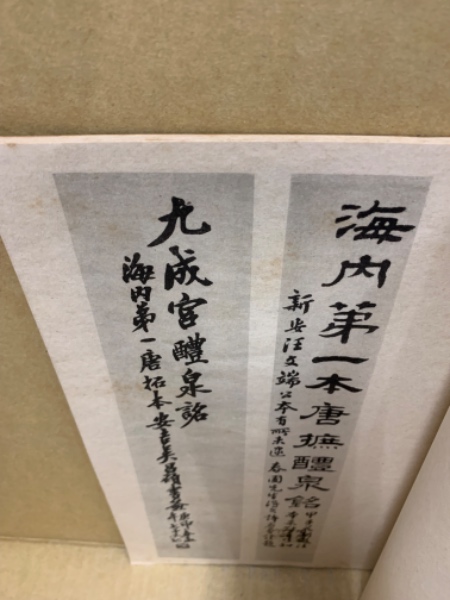 海内第一本唐搨醴泉銘
新安汪文端公本有所未逮
九成宮醴泉銘
海内第一唐拓本安吉吳昌碩書